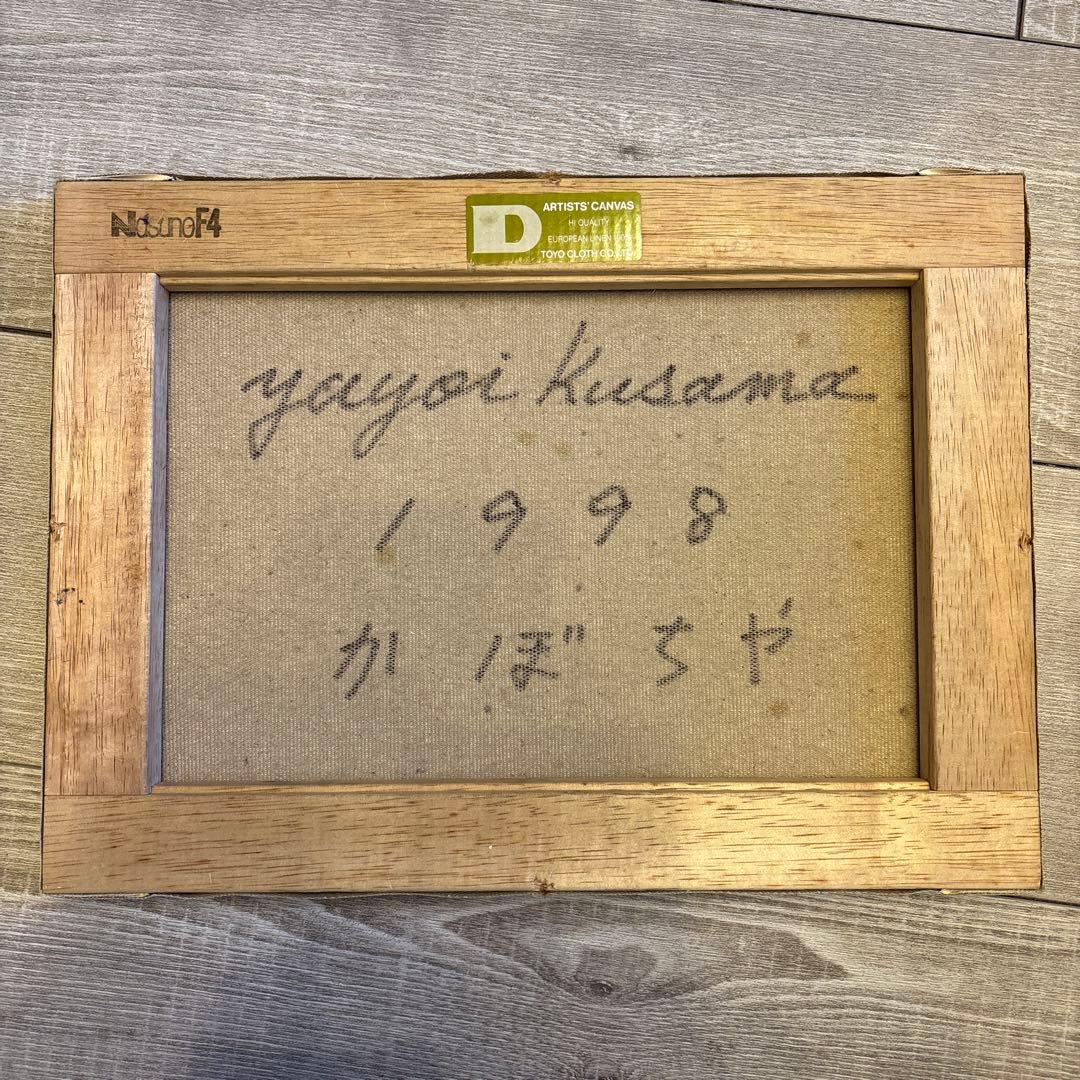 NasunoF4
D
ARTISTS' CANVAS
HI QUALITY
EUROPEAN LINEN
TOYO CLOTH CO., LTD.
yayoi Kusama
1998
かぼちゃ